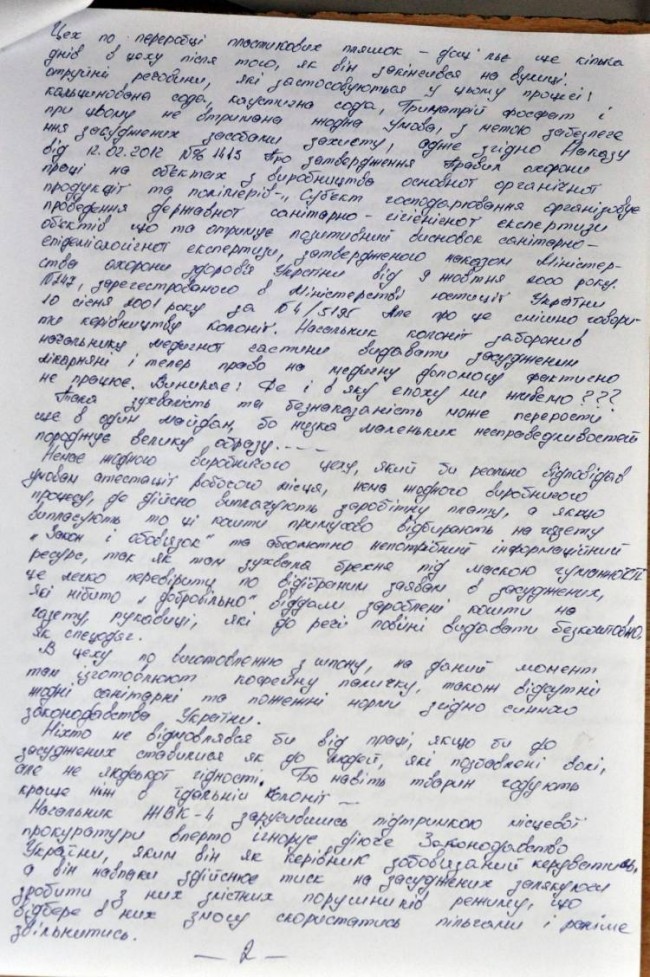 Цех по переробці пластикових пляшок – дощ ллє ще кілька
днів в цеху після того, як він закінчився на вулиці.
отруйні речовини, які застосовуються у цьому процесі:
кальцинована сода, каустична сода, Тринатрій фосфат і
при цьому не отримана жодна умова, з метою забезпече
ння засуджених засобами захисту, адже згідно Наказу
від 12.02.2012 №1413 Про затвердження Правил охорони
праці на обєктах з виробництва основної органічної
продукції та полімерів – „Субєкт господарювання організовує
проведення державної санітарно-гігієнічної експертизи
обєктів що та отримує позитивний висновок санітарно-
епідеміологічної експертизи, затвердженого наказом Міністер-
ства охорони здоровія України від 9 жовтня 2000 року.
№247, зарегестрованого в Міністерстві юстиції України
10 січня 2001 року за №4/5195 Але про це смішно говори-
ти керівництву колонії. Начальник колонії заборонив
начальнику медичної частини видавати засудженим
лікарняні і тепер право на медичну допомогу фактично
не працює. Виникає: Де і в яку епоху ми живемо???
Така зухвалість та безнаказаність може перерости
ще в один майдан, бо низка маленьких несправедливостей
породжує велику образу.----
Немає жодного виробничого цеху, який би реально відповідав
умовам атестації робочого місця, нема жодного виробничого
процесу, де дійсно виплачують заробітну плату, а якщо
виплачують то ці кошти примусово відбирають на газету
„Закон і обовязок" та абсолютно непотрібний інформаційний
ресурс, так як там зухвала брехня під маскою гуманності
це легко перевірити по відібраним заявам в засуджених,
які нібито „добровільно" віддали зароблені кошти на
газету, рукавиці, які до речі повіні видавати безкоштовно,
як спецодяг.
В цеху по виготовленню з шпону, на даний момент
там ізготовлюют кофейну паличку, також відсутні
жодні санітарні та пожежні норми згідно чинного
законодавства України.
Ніхто не відмовлявся би від праці, якщо би до
засуджених ставилися як до людей, які позбавлені волі,
але не людської гідності. Бо навіть тварин годують
краще ніж в їдальній колонії –
Начальник ЖВК-4 заручившись підтримкою місцевої
прокуратури вперто ігнорує діюче Законодавство
України, яким він як керівник забовязаний керуватись,
а він навпаки здійснює тиск на засуджених залякуюси
зробити з них злістних порушників режиму, що
відбере в них змогу скористатись пільгами і раніше
звільнитись.
— 2 —